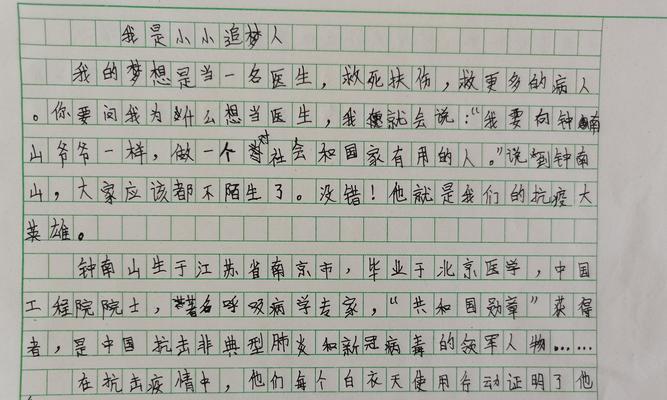 我是小小追梦人
我的梦想是当一名医生，救死扶伤，救更多的病人
。你要问我为什么想当医生，我就会说：“我要向钟南
山爷爷一样，做一个对社会和国家有用的人。”说到钟南
山，大家应该都不陌生了。没错！他就是我们的抗疫大
英雄。
钟南山生于江苏省南京市，毕业于北京医学，中国
工程院院士，著名呼吸病学专家，“共和国勋章”获得
者，是中国抗击非典型肺炎和新冠病毒的领军人物……
在抗击疫情中，他们每个白衣天使用行动证明了他